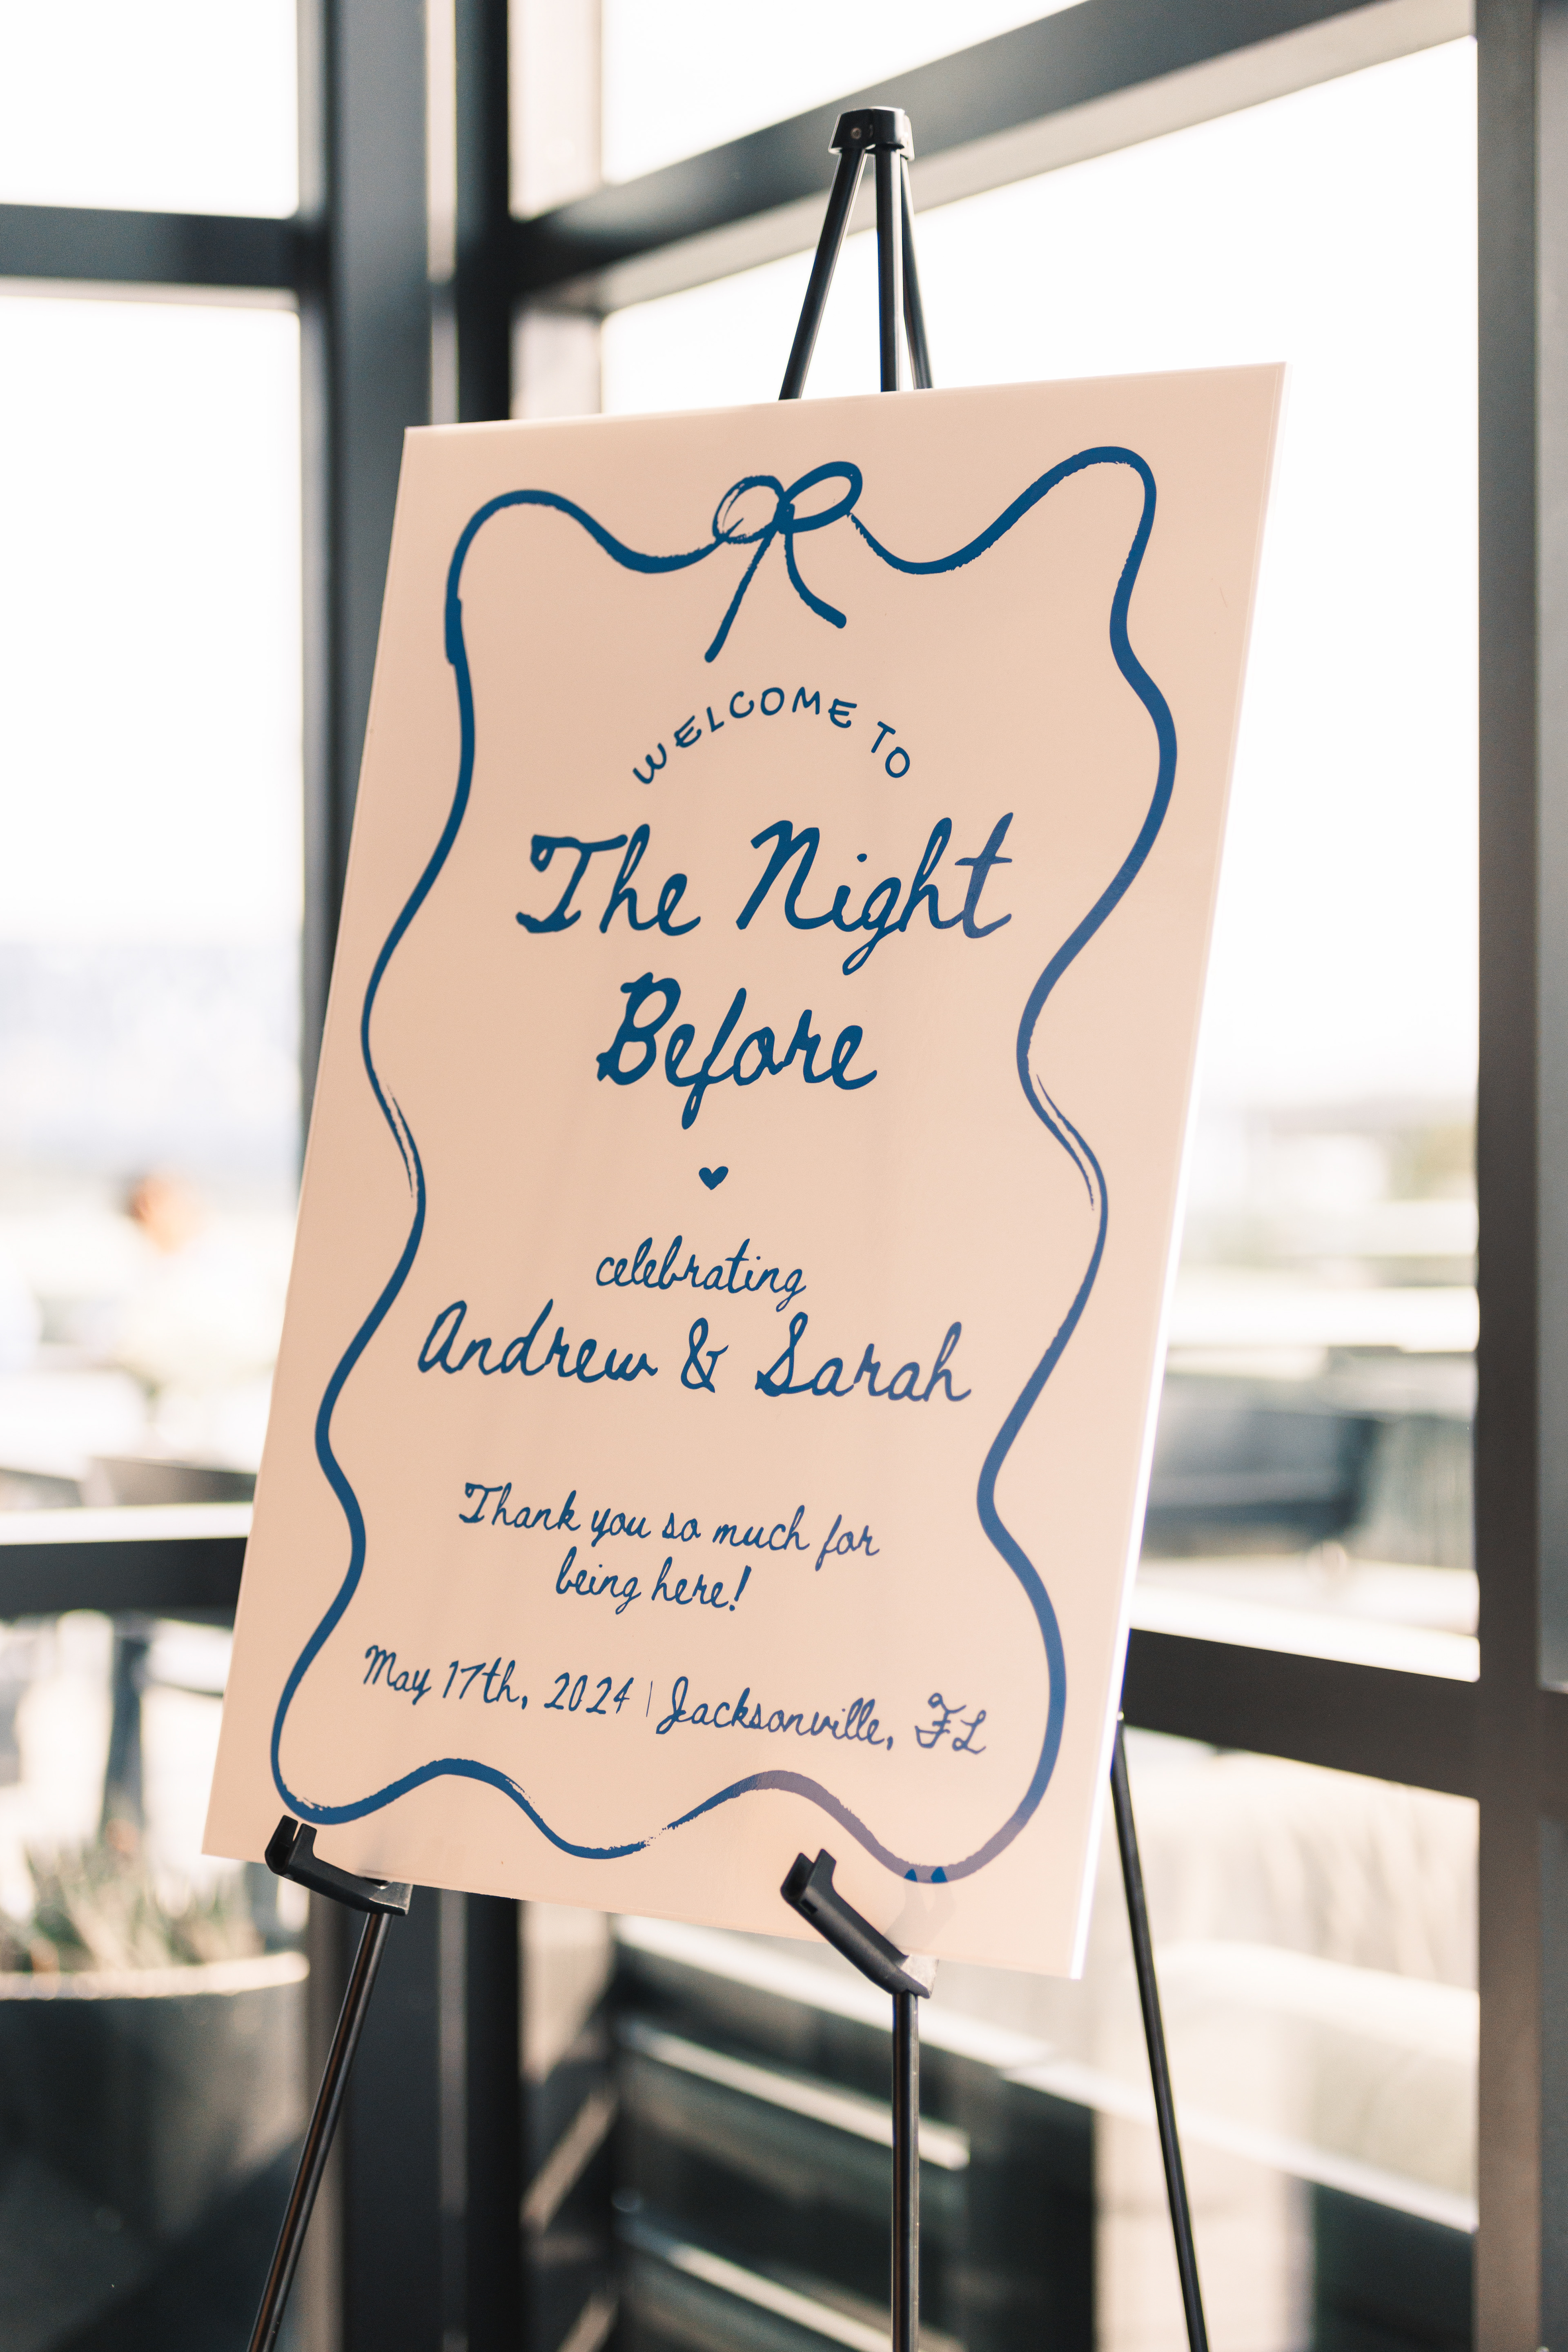 WELCOME TO
The Night
Before
celebrating
Andrew & Sarah
Thank you so much for
being here!
May 17th, 2024 | Jacksonville, FL